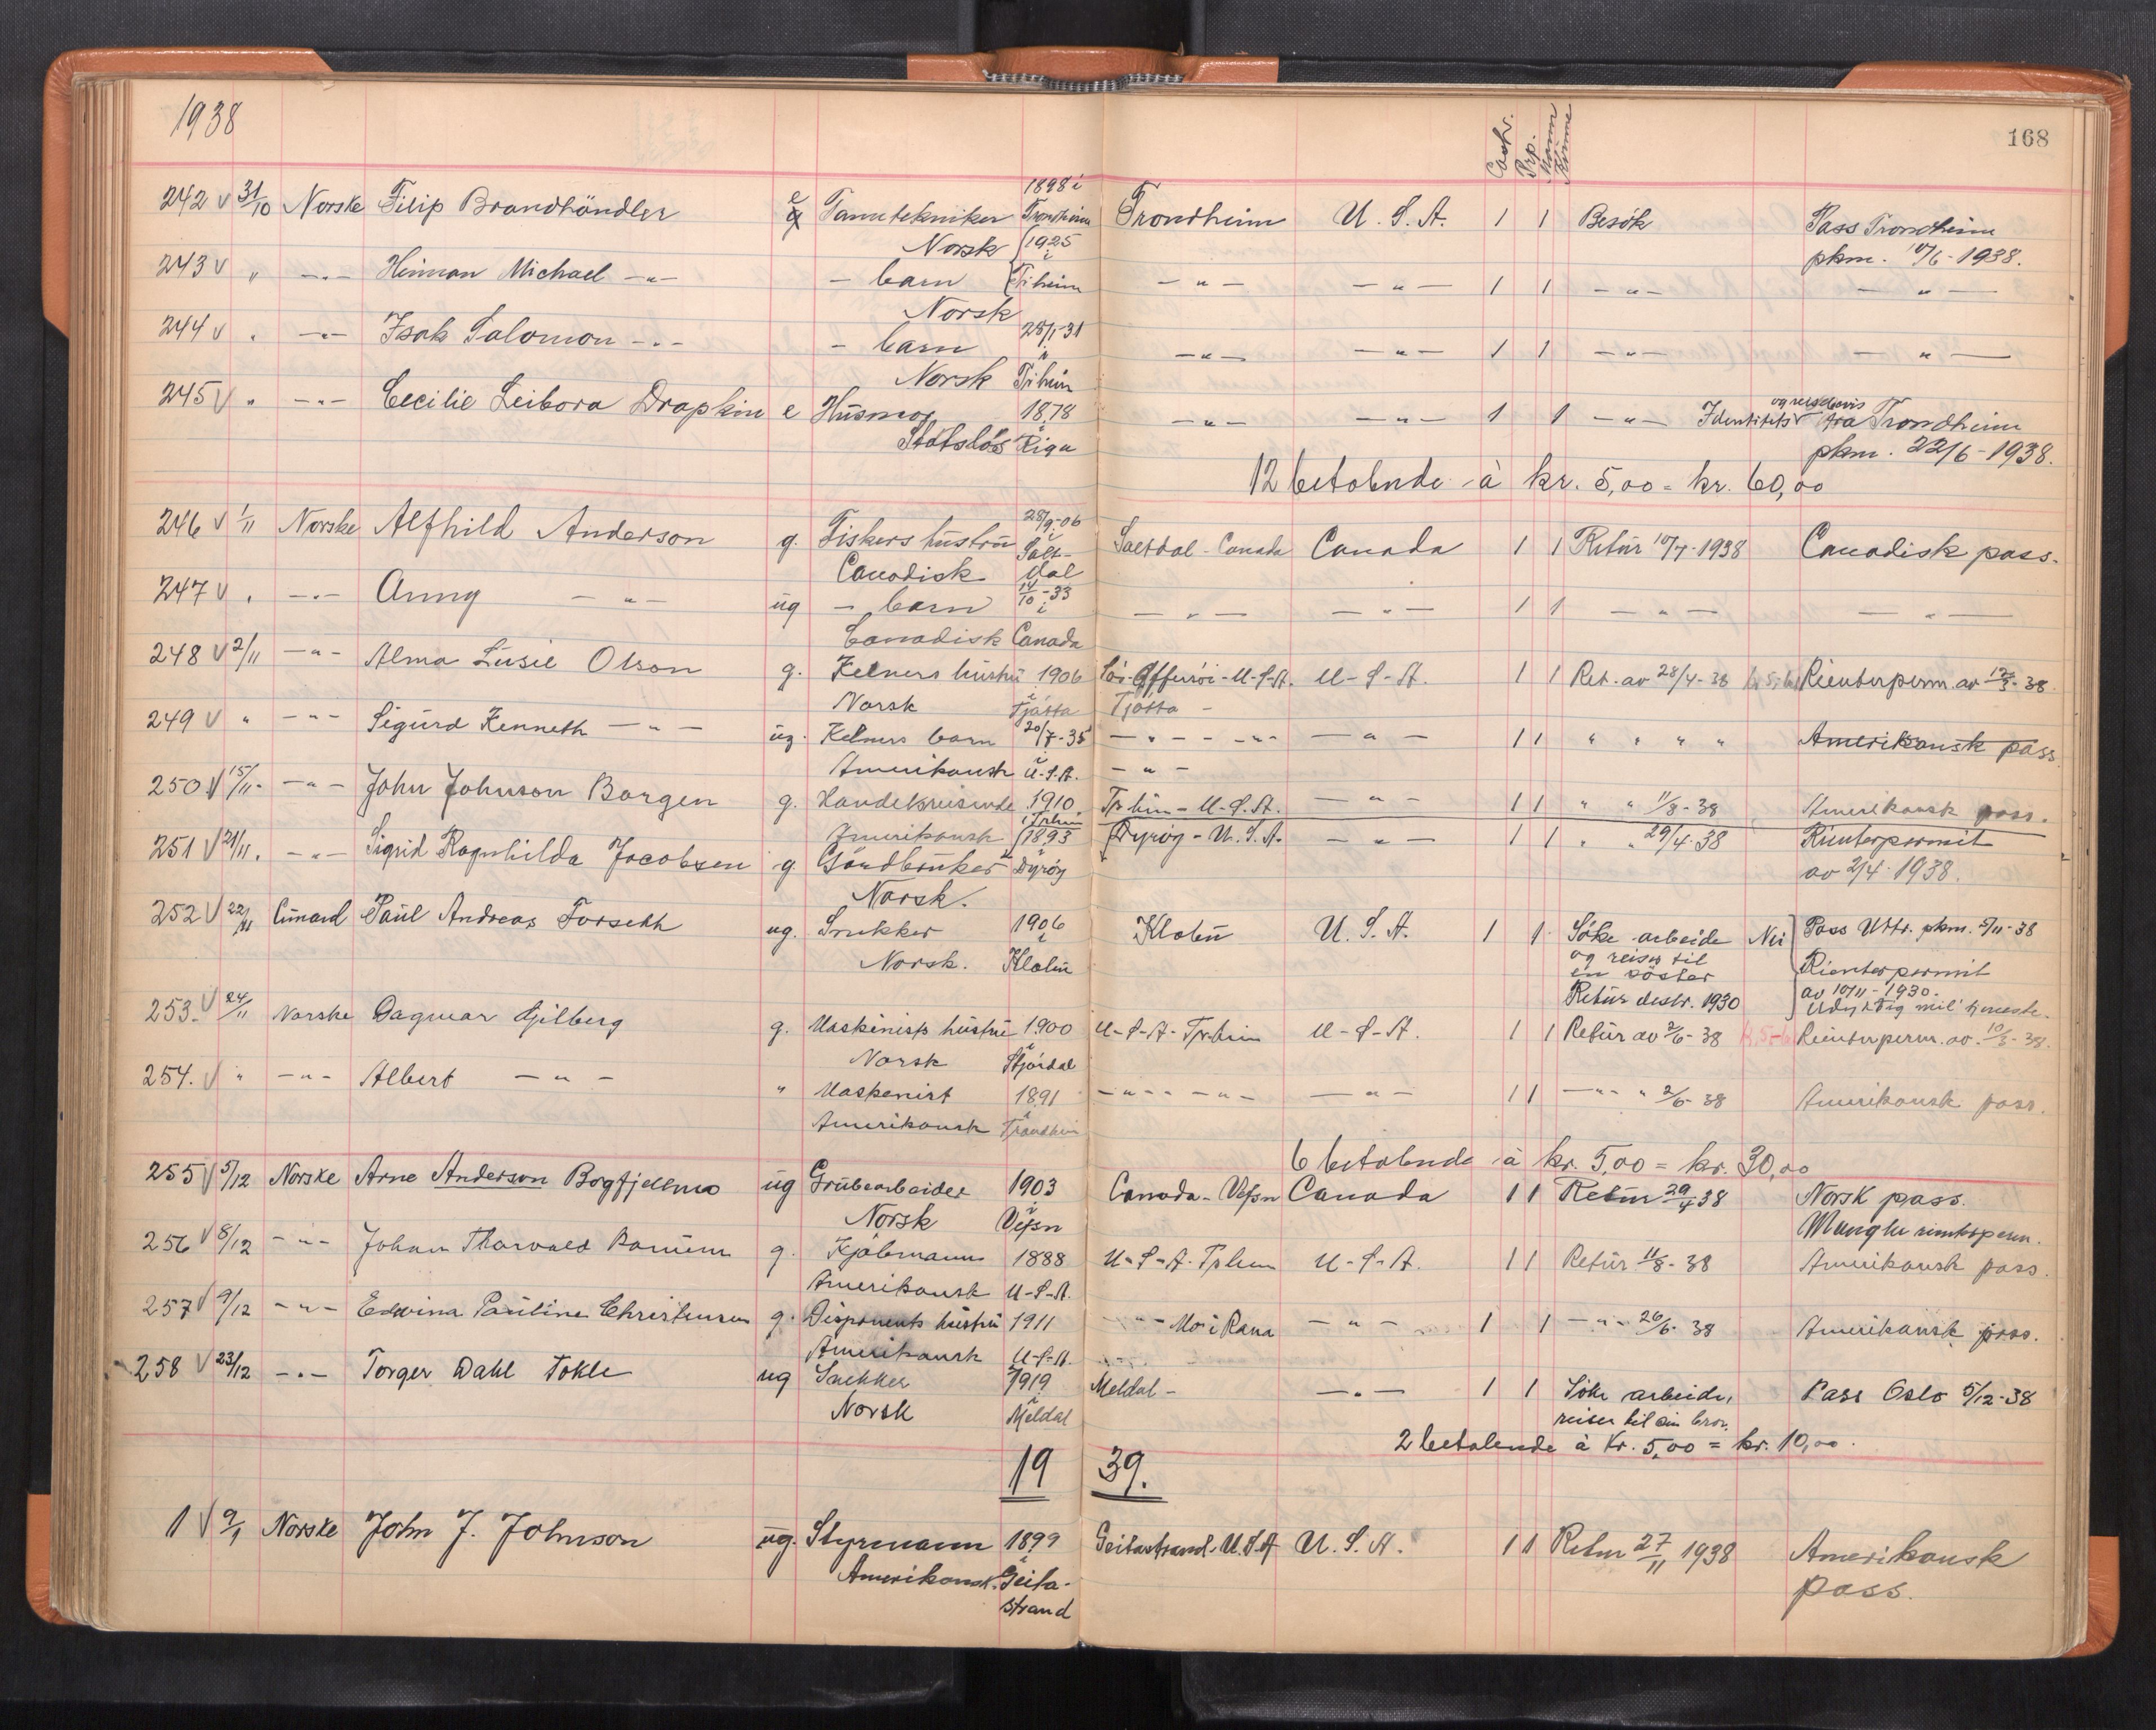 1938 Cash. Prp. Mann Kvinne 168
242 V 31/10 Norske Filip Brandhändler e Tanntekniker 1898 i Trondheim Trondheim U.S.A. 1 1 Besök Pass Trondheim
Norsk pkm. 10/6-1938.
243 V " -"- Herman Michael -"- - barn 1925 i Tr.heim -"- -"- 1 1 -"- -"-
Norsk
244 V " -"- Isak Salomon -"- - barn 28/1-31 -"- -"- 1 1 -"- -"-
Norsk i Tr.heim
245 V " -"- Cecilie Leibora Drapkin e Husmor 1878 -"- -"- 1 1 -"- Identitets og reisebevis fra Trondheim
Statslös i Riga pkm. 22/6-1938.
12 betalende à kr. 5,00 = kr. 60,00
246 V 1/11 Norske Alfhild Anderson g. Fiskers hustru 28/9-06 i Salt- Saltdal-Canada Canada 1 1 Retur 10/7-1938 Canadisk pass.
Canadisk dal
247 V " -"- Anny -"- ug - barn 14/10-33 i -"- -"- 1 1 -"- -"-
Canadisk Canada
248 V 2/11 -"- Alma Lusie Olson g. Kelners hustru 1906 U-S-A. U-S-A. 1 1 Ret. av 28/4-38 Reenterperm. av 12/3-38.
Norsk i Tjøtta Tjøtta -
249 V " -"- Sigurd Kenneth -"- ug. Kelners barn 20/7-35 -"- -"- -"- 1 1 " " " " Amerikansk pass.
Amerikansk i U-S-A. -"-
250 V 15/11- -"- John Johnson Borgen g. Handelsreisende 1910 Tr.heim-U-S-A. -"- 1 1 " " 11/8-38 Amerikansk pass.
Amerikansk i Tr.heim
251 V 21/11. -"- Sigrid Ragnhilda Jacobsen g. Gårdbruker 1893 i Dyröy Dyröy-U.S.A. -"- 1 1 " " 29/4-38 Reenterpermit
Norsk. av 2/4-1938.
252 V 22/11 Cunard Paul Andreas Forseth ug. Snekker 1906 Klæbu U.S.A. 1 1 Söke arbeide Nei Pass Uttr. pkm. 5/11-38
Norsk. i Klæbu og reiser til
en söster Reenterpermit
Retur destr. 1930 av 10/11-1930.
Udyktig mil. tjeneste.
253. V 24/11 Norske Dagmar Gilberg g. Maskinists hustru 1900 U-S-A-Tr.heim U-S-A. 1 1 Retur av 2/6-38 Reenterperm. av 10/3-38.
Norsk i Stjördal
254. V " -"- Albert -"- " Maskinist 1891 -"- -"- -"- 1 1 -"- " 2/6-38 Amerikansk pass.
Amerikansk i Trondheim
6 betalende à kr. 5,00 = kr. 30,00
255 V 5/12 Norske Arne Anderson Bogfjellmo ug Grubearbeider 1903 Canada-Vefsn Canada 1 1 Retur 29/4 38 Norsk pass.
Norsk i Vefsn Mangler reenterperm.
256 V 8/12 -"- Johan Thorvald g. Kjöbmann 1888 U-S-A-Tr.heim U-S-A. 1 1 Retur 11/8-38 Amerikansk pass.
Amerikansk U-S-A.
257 V 9/12 -"- Edwina Pauline Christensen g. Disponents hustru 1911 -"- Mo i Rana -"- 1 1 -"- 26/6-38 Amerikansk pass.
Amerikansk U-S-A.
258 V 23/12 -"- Torger Dahl Tokle ug Snekker 1919 Meldal - -"- 1 1 Söke arbeide, Pass Oslo 5/12-38
Norsk i Meldal reiser til sin bror.
2 betalende à kr. 5,00 = kr. 10,00.
19 39.
1 V 9/1 Norske John J. Johnson ug. Styrmann 1899 Geitastrand-U.S.A U.S.A. 1 1 Retur 27/11 1938 Amerikansk
Amerikansk. i Geita- pass.
strand